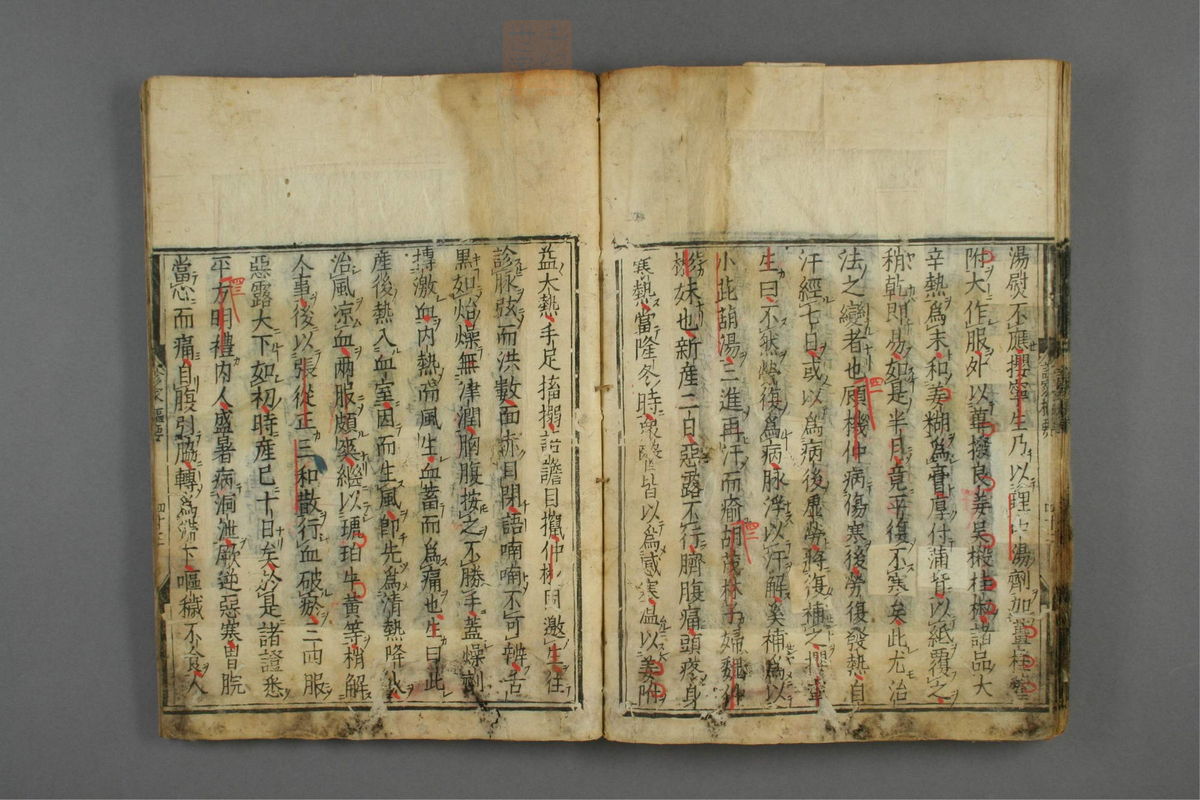 湯熨不應攖寧生乃以理中湯劑加薑桂
附大作服外以蓽撥良姜吳椒桂椒諸品大
辛熱爲末和姜糊爲膏厚付滿背以紙覆之
稍乾即易如是半月竟平復不寒矣此尤治
法之變者也顧機仲病傷寒後勞復發熱自
汗經七日或以爲病後虛勞將復補之攖寧
生曰不然勞復爲病脉浮以汗解奚補爲以
小茈葫湯三進再汗而瘉胡茂林子婦魏仲
彬妹也新產二日惡露不行臍腹痛頭疼身
寒熱當隆冬時衆醫皆以爲感寒温以姜附
益大熱手足搐搦語譫目攛仲彬邀生往
診脉弦而洪數面赤目閉語喃喃不可辨舌
黑如炲燥無津潤胸腹按之不勝手蓋燥劑
摶激血內熱而風生血蓄而爲痛也生曰此
產後熱入血室因而生風即先爲清熱降火
治風凉血兩服頗爽繼以琥珀牛黃等稍解
人事後以張從正三和散行血破瘀三四服
惡露大下如初時產已十日矣於是諸證悉
平方明禮內人盛暑病洞泄厥逆惡寒胃脘
當心而痛自腹引脇轉爲滯下嘔穢不食人